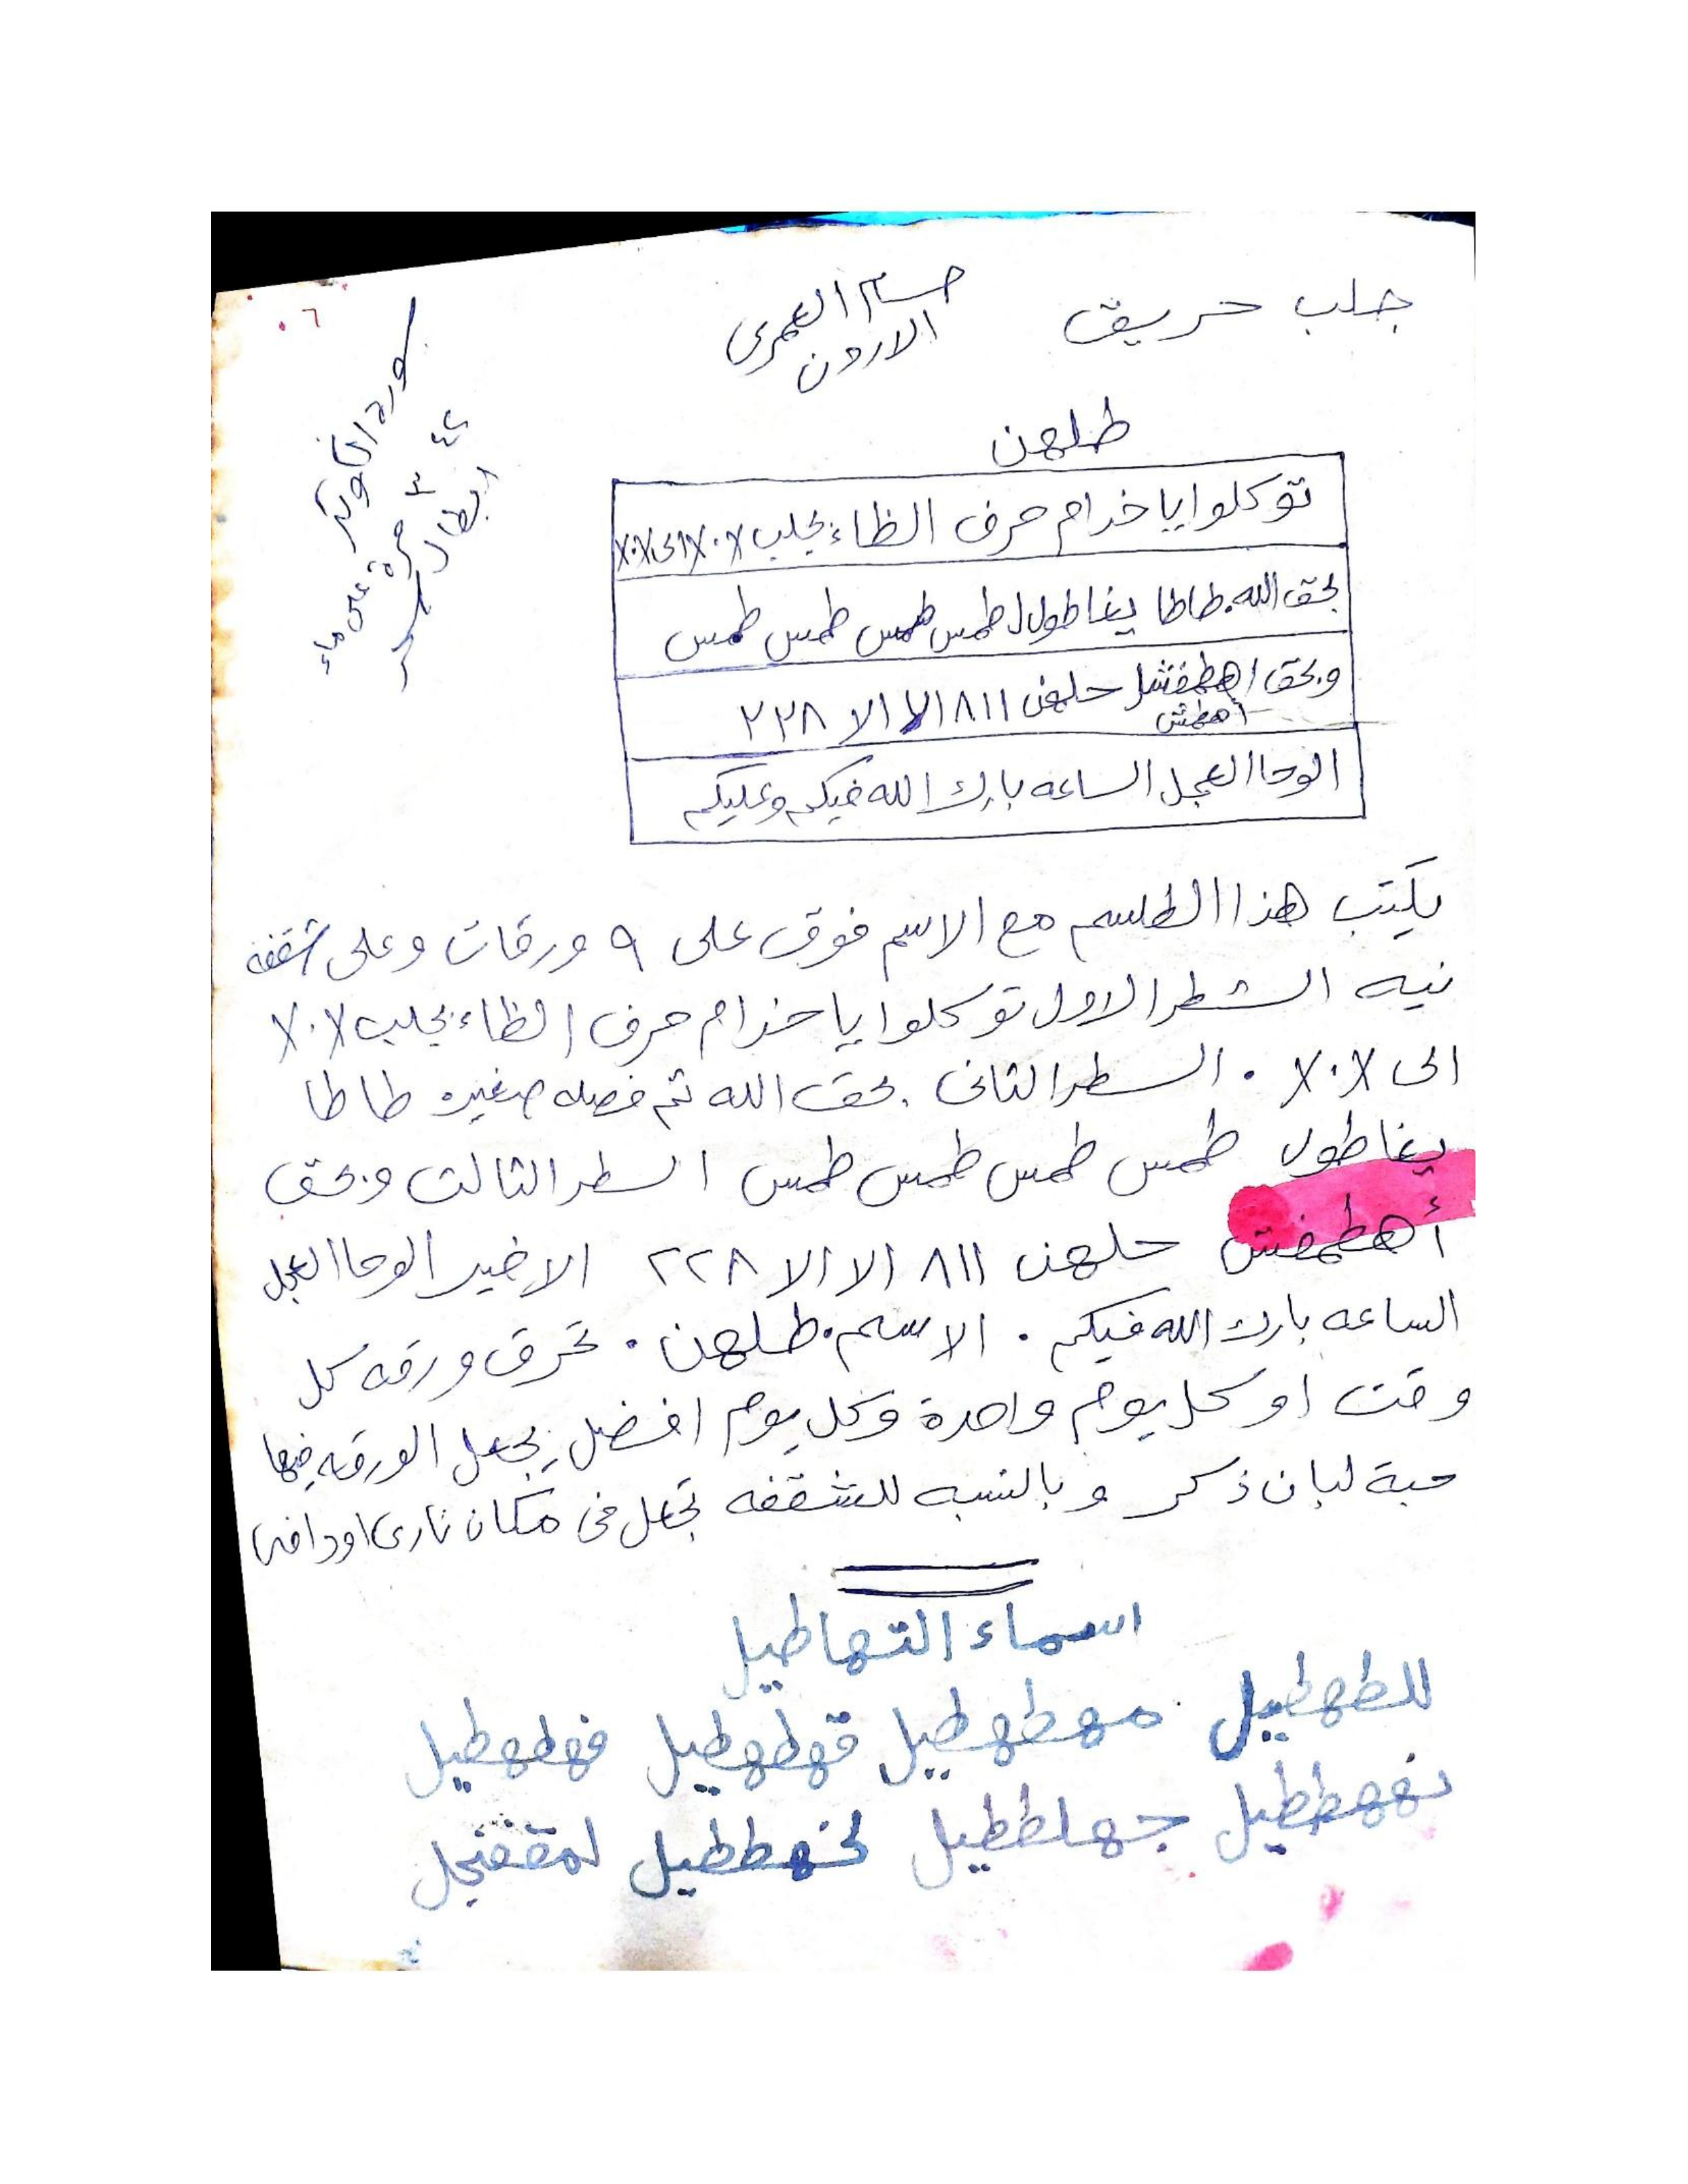 جلب حريق
حسام العمري
الاردن
٦
سورة الكوثر
٤٢ ٣ مرة على ماء
ابطال سحر
طلهن
توكلوا يا خدام حرف الظاء بجلب X٠X الى X٠X
بحق الله. طاطا يغاطول طمس طمس طمس طمس
وبحق اهطمفشل حلهن ٨١١ الا الا ٢٢٨
أهطمش
الوحا العجل الساعه بارك الله فيكم وعليكم
يكتب هذا الطلسم مع الاسم فوق على ٩ ورقات وعلى شقفه
نيه الشطر الاول توكلوا يا خدام حرف الظاء بجلب X٠X
الى X٠X . السطر الثانى بحق الله ثم فصله صغيره طاطا
يغاطول طمس طمس طمس طمس السطر الثالث وبحق
أهطمفش حلهن ٨١١ الا الا ٢٢٨ الاخير الوحا العجل
الساعه بارك الله فيكم . الاسم. طلهن . تحرق ورقه كل
وقت او كل يوم واحدة وكل يوم افضل يجعل الورقه فيها
حبة لبان ذكر وبالنسبه للشقفه تجعل فى مكان نارى او دافى
اسماء التهاطيل
للطهطيل مهطهطيل قهطهطيل فهطهطيل
نهههططيل جهلططيل لخهططيل لمقفنجل